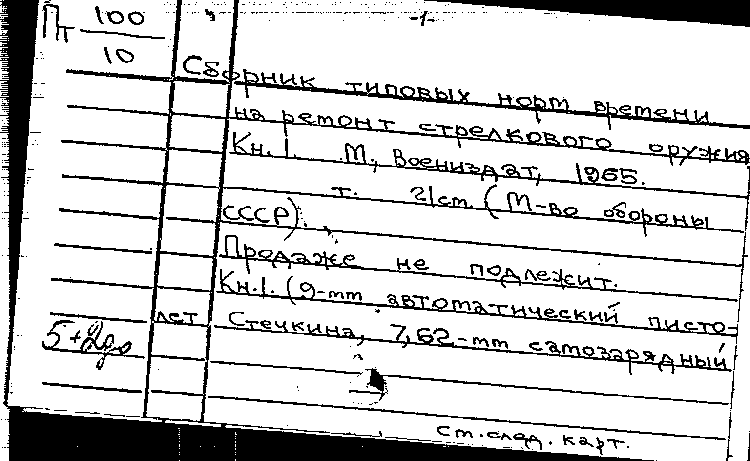 Пт 100
10
-1-
Сборник типовых норм времени
на ремонт стрелкового оружия
Кн. 1. М., Воениздат, 1965.
т. 21см. (М-во обороны
СССР).
Продаже не подлежит.
Кн.1. (9-мм автоматический писто-
лет Стечкина, 7,62-мм самозарядный
ст. след. карт.